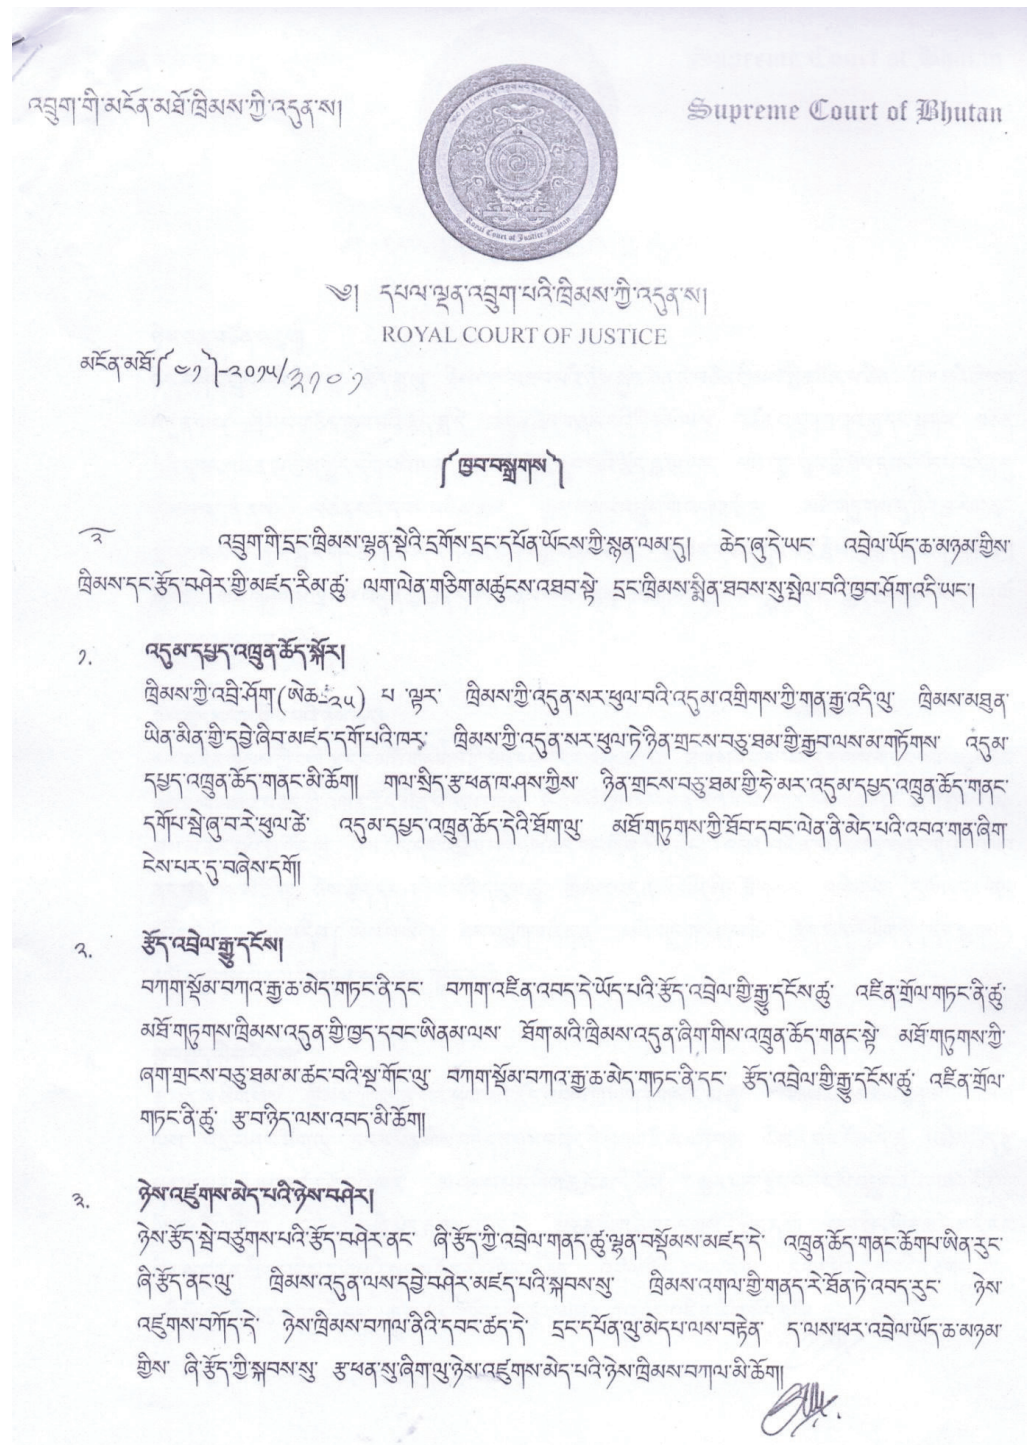 འབྲུག་གི་མངོན་མཐོ་ཁྲིམས་ཀྱི་འདུན་ས།
Supreme Court of Bhutan
Royal Court of Justice-Bhutan
༄། དཔལ་ལྡན་འབྲུག་པའི་ཁྲིམས་ཀྱི་འདུན་ས།
ROYAL COURT OF JUSTICE
མངོན་མཐོ་(༤༡)-༢༠༡༥/༣༡༠༡
༼ ཁྱབ་བསྒྲགས ༽
འབྲུག་གི་དྲང་ཁྲིམས་ལྷན་སྡེའི་དྲགོས་དྲང་དཔོན་ཡོངས་ཀྱི་སྙན་ལམ་དུ། ཆེད་ཞུ་དེ་ཡང་ འབྲེལ་ཡོད་ཆ་མཉམ་གྱིས་
ཁྲིམས་དང་རྩོད་བཤེར་གྱི་མཛད་རིམ་ཚུ་ ལག་ལེན་གཅིག་མཚུངས་འཐབ་སྟེ་ དྲང་ཁྲིམས་སྨིན་ཐབས་སུ་སྤེལ་བའི་ཁྱབ་ཤོག་འདི་ཡང་།
༡. འདུམ་དཔྱད་འཁྲུན་ཆོད་སྐོར།
ཁྲིམས་ཀྱི་འབྲི་ཤོག་(ཨེཆ་-༢༥) པ་ལྟར་ ཁྲིམས་ཀྱི་འདུན་སར་ཕུལ་བའི་འདུམ་འགྲིགས་ཀྱི་གན་རྒྱ་འདི་ལུ་ ཁྲིམས་མཐུན་
ཡིན་མིན་གྱི་དབྱེ་ཞིབ་མཛད་དགོ་པའི་ཁར་ ཁྲིམས་ཀྱི་འདུན་སར་ཕུལ་ཏེ་ཉིན་གྲངས་བཅུ་ཐམ་གྱི་རྒྱབ་ལས་མ་གཏོགས་ འདུམ་
དཔྱད་འཁྲུན་ཆོད་གནང་མི་ཆོག། གལ་སྲིད་རྩ་ཕན་ཁ་ཤས་ཀྱིས་ ཉིན་གྲངས་བཅུ་ཐམ་གྱི་ཧེ་མར་འདུམ་དཔྱད་འཁྲུན་ཆོད་གནང་
དགོཔ་སྦེ་ཞུ་བ་རེ་ཕུལ་ཚེ་ འདུམ་དཔྱད་འཁྲུན་ཆོད་དེའི་ཐོག་ལུ་ མཐོ་གཏུགས་ཀྱི་ཐོབ་དབང་ལེན་ནི་མེད་པའི་འབའ་གན་ཞིག་
ངེས་པར་དུ་བཞེས་དགོ།
༢. རྩོད་འབྲེལ་རྒྱུ་དངོས།
བཀག་སྡོམ་བཀའ་རྒྱ་ཆ་མེད་གཏང་ནི་དང་ བཀག་འཛིན་འབད་དེ་ཡོད་པའི་རྩོད་འབྲེལ་གྱི་རྒྱུ་དངོས་ཚུ་ འཛིན་གྲོལ་གཏང་ནི་ཚུ་
མཐོ་གཏུགས་ཁྲིམས་འདུན་གྱི་ཁྱད་དབང་ཨིནམ་ལས་ ཐོག་མའི་ཁྲིམས་འདུན་ཞིག་གིས་འཁྲུན་ཆོད་གནང་སྟེ་ མཐོ་གཏུགས་ཀྱི་
ཞག་གྲངས་བཅུ་ཐམ་མ་ཚང་བའི་སྔ་གོང་ལུ་ བཀག་སྡོམ་བཀའ་རྒྱ་ཆ་མེད་གཏང་ནི་དང་ རྩོད་འབྲེལ་གྱི་རྒྱུ་དངོས་ཚུ་ འཛིན་གྲོལ་
གཏང་ནི་ཚུ་ རྩ་བ་ཉིད་ལས་འབད་མི་ཆོག།
༣. ཉེས་འཛུགས་མེད་པའི་ཉེས་བཤེར།
ཉེས་རྩོད་སྦེ་བཙུགས་པའི་རྩོད་བཤེར་ནང་ ཞི་རྩོད་ཀྱི་འབྲེལ་གནད་ཚུ་ལྷན་བསྡོམས་མཛད་དེ་ འཁྲུན་ཆོད་གནང་ཆོགཔ་ཨིན་རུང་
ཞི་རྩོད་ནང་ལུ་ ཁྲིམས་འདུན་ལས་དབྱེ་བཤེར་མཛད་པའི་སྐབས་སུ་ ཁྲིམས་འགལ་གྱི་གནད་རེ་ཐོན་ཏེ་འབད་རུང་ ཉེས་
འཛུགས་བཀོད་དེ་ ཉེས་ཁྲིམས་བཀལ་ནིའི་དབང་ཚད་དེ་ དྲང་དཔོན་ལུ་མེདཔ་ལས་བརྟེན་ ད་ལས་ཕར་འབྲེལ་ཡོད་ཆ་མཉམ་
གྱིས་ ཞི་རྩོད་ཀྱི་སྐབས་སུ་ རྩ་ཕན་སུ་ཞིག་ལུ་ཉེས་འཛུགས་མེད་པའི་ཉེས་ཁྲིམས་བཀལ་མི་ཆོག།